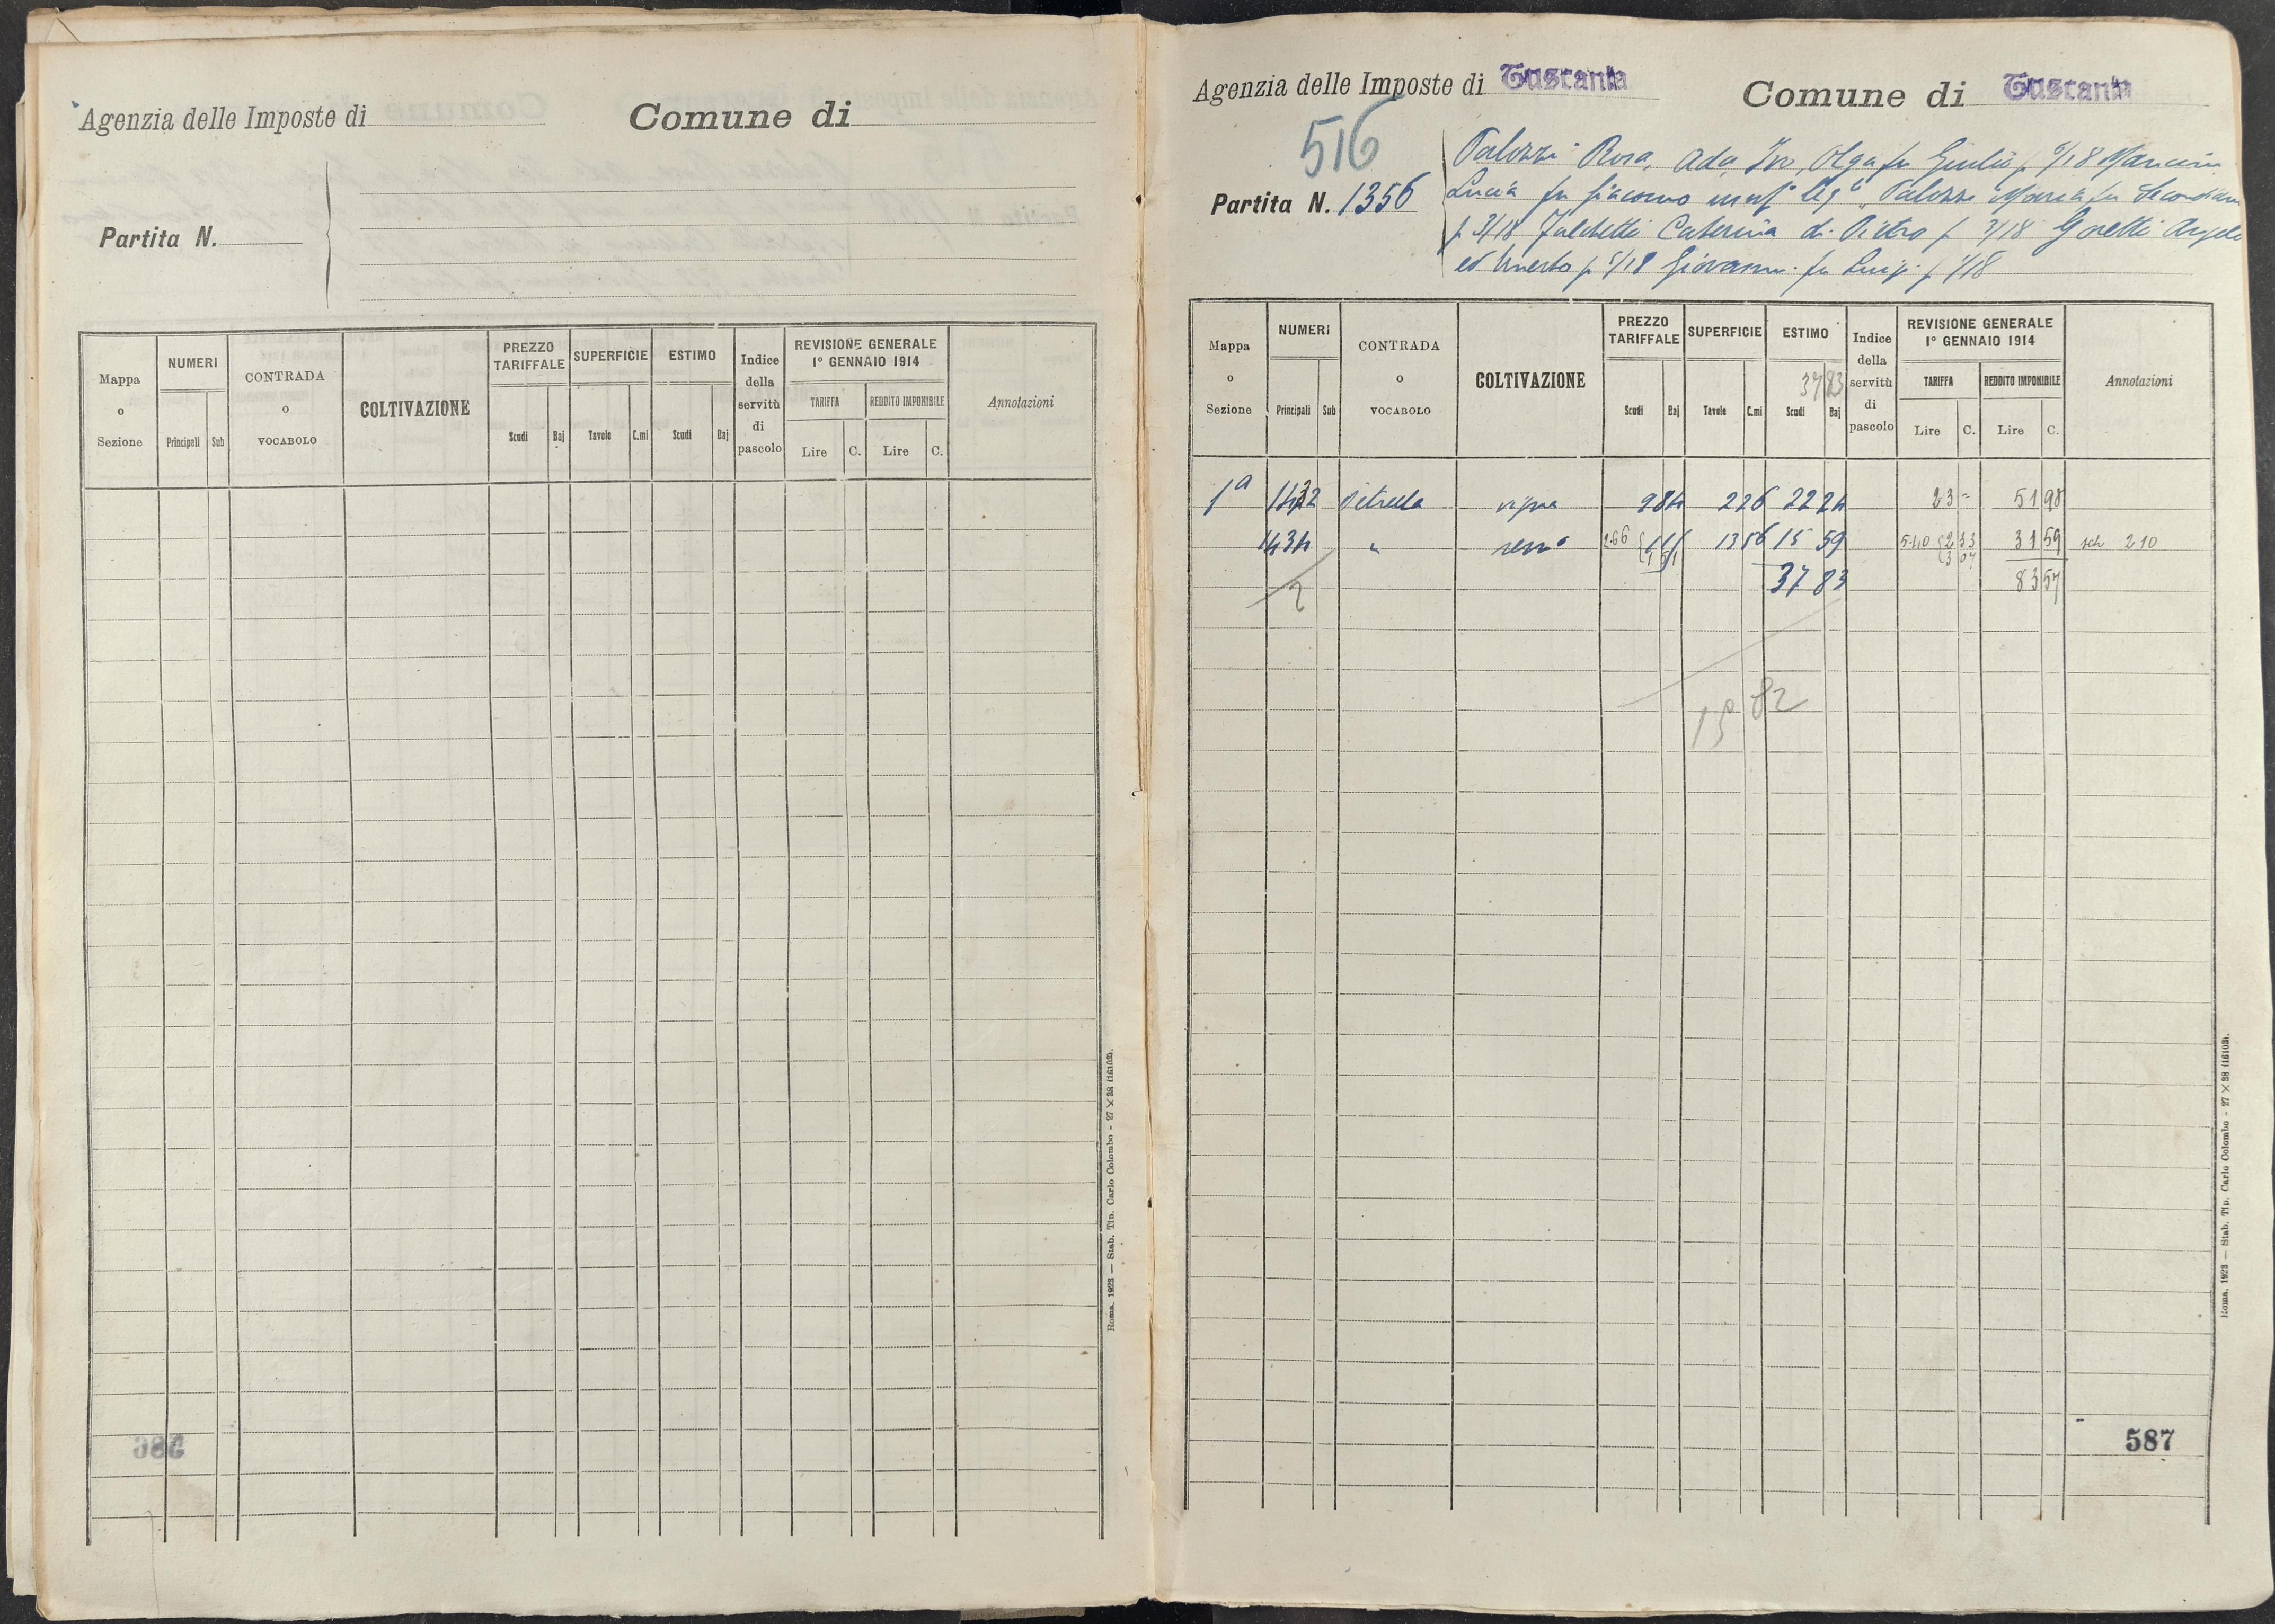 Agenzia delle Imposte di
Comune di
Partita N.
Mappa o Sezione
NUMERI
Principali
Sub
CONTRADA O VOCABOLO
COLTIVAZIONE
PREZZO TARIFFALE
Scudi
Baj
SUPERFICIE
Tavole
C.mi
ESTIMO
Scudi
Baj
Indice della servitù di pascolo
REVISIONE GENERALE
1° GENNAIO 1914
TARIFFA
REDDITO IMPONIBILE
Lire
C.
Lire
C.
Annotazioni
Roma, 1923 — Stab. Tip. Carlo Colombo - 27 × 38 (16103).
Agenzia delle Imposte di Tuscania
Comune di Tuscania
516
Partita N. 1356
Palozzi Rosa, Ada, Ivo, Olga fu Giulio p 6/18 Mancini
Lucia fu Giacomo usuf Palozzi Maria fu
p 3/18 Falchetti Caterina di Pietro p 3/18 Goretti
ed p 5/18 Giovanni fu Luigi p 1/18
Mappa o Sezione
NUMERI
Principali
Sub
CONTRADA O VOCABOLO
COLTIVAZIONE
PREZZO TARIFFALE
Scudi
Baj
SUPERFICIE
Tavole
C.mi
ESTIMO
37 83
Scudi
Baj
Indice della servitù di pascolo
REVISIONE GENERALE
1° GENNAIO 1914
TARIFFA
REDDITO IMPONIBILE
Lire
C.
Lire
C.
Annotazioni
1a 1432 Pitrella vigna 984 226 22 24 23 = 51 98
1434 " 2.66 13 56 15 59 5.40 31 59 210
2
37 83
83 57
15 82
587
Roma, 1923 — Stab. Tip. Carlo Colombo - 27 × 38 (16103).